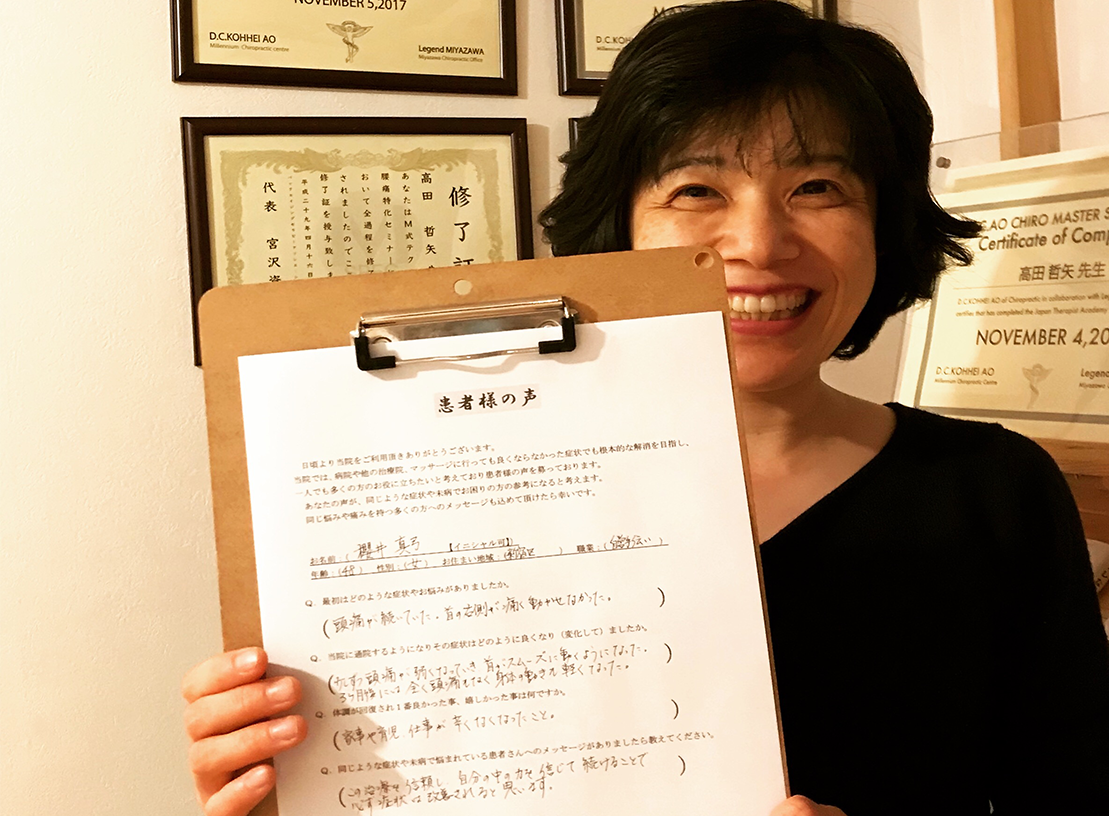 NOVEMBER 5,2017
D.C.KOHHEI AO
Millennium Chiropractic centre
Legend MIYAZAWA
Miyazawa Chiropractic Office
修了証
高田 哲矢
あなたはM式テク
腰痛特化セミナー
おいて全過程を修了
されましたのでこ
修了証を授与致しま
平成二十九年四月十六日
代表 宮沢資
AO CHIRO MASTER S
Certificate of Comp
高田 哲矢 先生
D.C.KOHHEI AO of Chiropractic in collaboration with Le
certifies that has completed the Japan Therapist Academy
NOVEMBER 4,20
D.C.KOHHEI AO
Millennium Chiropractic Centre
Legend
Miyazawa Chiropractic
患者様の声
日頃より当院をご利用頂きありがとうございます。
当院では、病院や他の治療院、マッサージに行っても良くならなかった症状でも根本的な解消を目指し、
一人でも多くの方のお役に立ちたいと考えており患者様の声を募っております。
あなたの声が、同じような症状や未病でお困りの方の参考になると考えます。
同じ悩みや痛みを持つ多くの方へのメッセージも込めて頂けたら幸いです。
お名前:( 櫻井 真弓 【イニシャル可】)
年齢:(48) 性別:(女) お住まい地域:(新宿区 ) 職業:( 手伝い )
Q. 最初はどのような症状やお悩みがありましたか。
(頭痛が続いていた。首の右側が痛く動かせなかった。)
Q. 当院に通院するようになりその症状はどのように良くなり(変化して)ましたか。
(少しずつ頭痛が弱くなっていき首がスムーズに動くようになった。
3ヶ月後には全く頭痛もなく身体の動きも軽くなった。)
Q. 体調が回復され1番良かった事、嬉しかった事は何ですか。
(家事や育児、仕事が辛くなくなったこと。)
Q. 同じような症状や未病で悩まれている患者さんへのメッセージがありましたら教えてください。
(この治療を信頼し、自分の中の力を信じて続けることで
必ず症状は改善されると思います。)